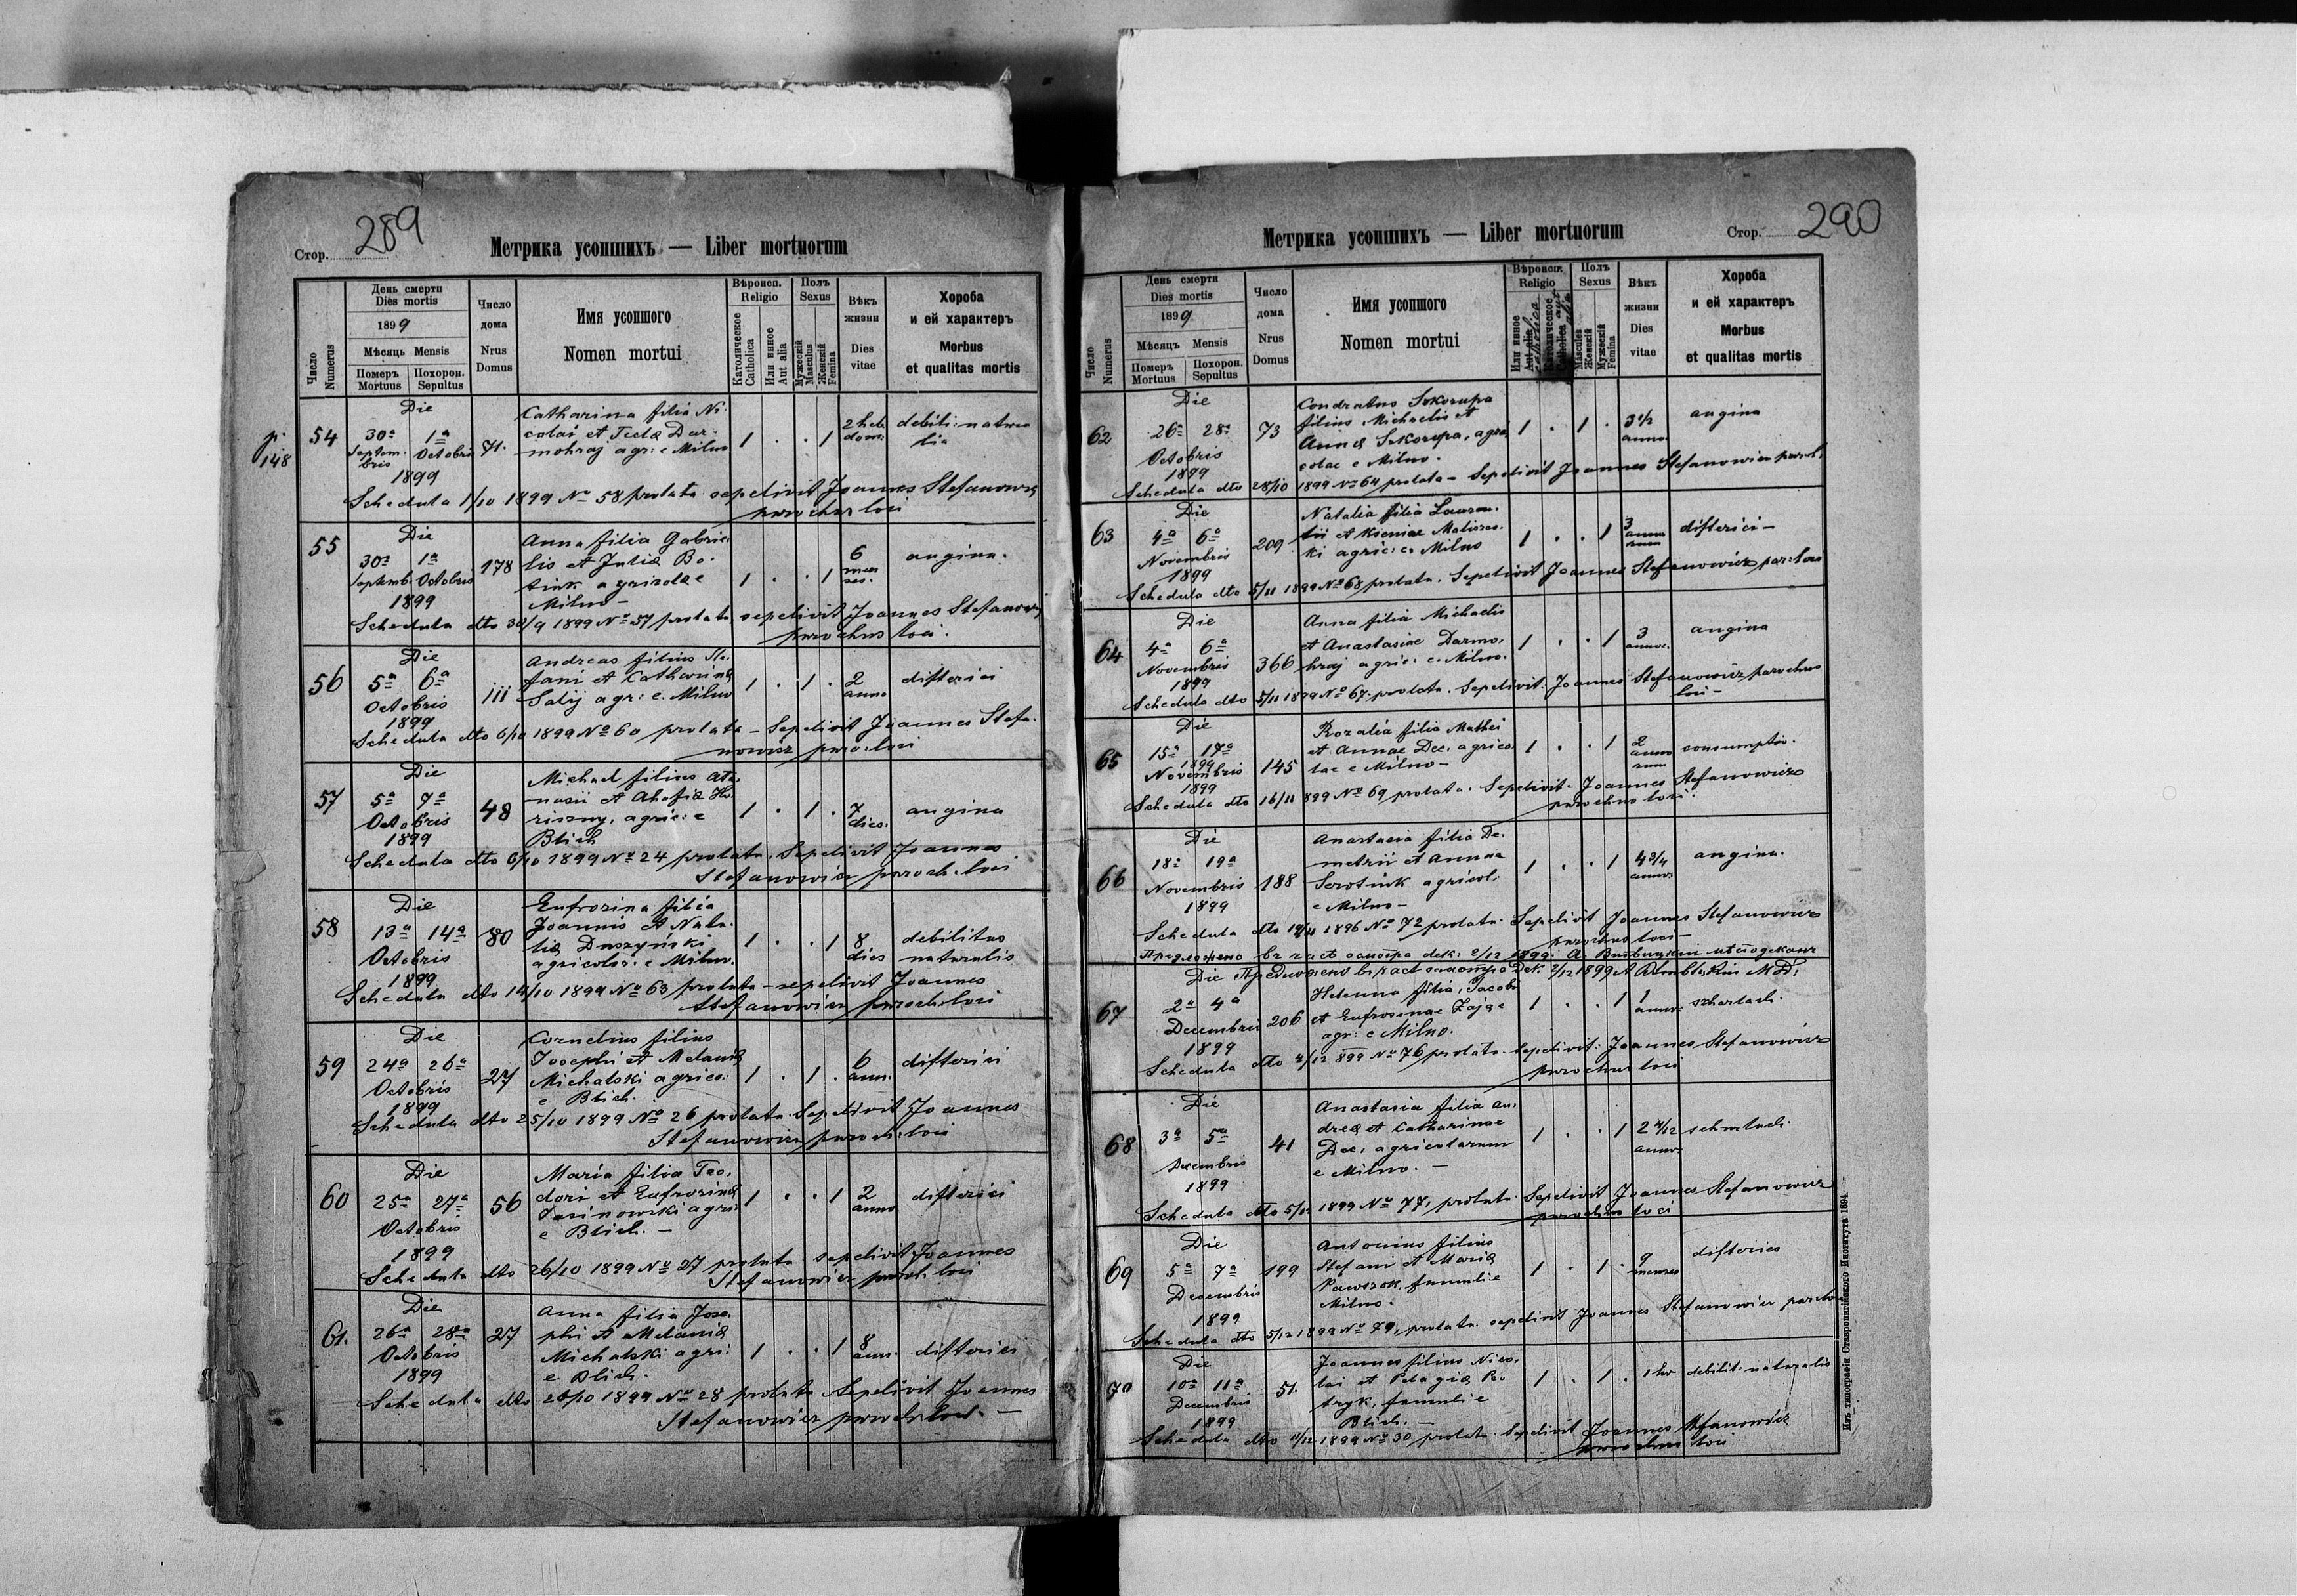 289
Стор.
Метрика усопшихъ — Liber mortuorum
Число
Numerus
День смерти
Dies mortis
1899
Мѣсяць Mensis
Померъ
Mortuus
Похорон.
Sepultus
Число
дома
Nrus
Domus
Имя усопшого
Nomen mortui
Вѣроисп.
Religio
Католическое
Catholica
Или инное
Aut alia
Полъ
Sexus
Мужескій
Masculus
Женскій
Femina
Вѣкъ
жизни
Dies
vitae
Хороба
и ей характеръ
Morbus
et qualitas mortis
p.
148
54
Die
30ª 1ª
Septem- Octobris
bris
1899
71.
Catharina filia Ni-
colai et Teclæ Dar-
mohraj agr: e Milno
1 . . 1
2 heb
dom.
debili: natura
lis
Scheduta 1/10 1899 No 58 prolata. sepelivit Joannes Stefanowicz
parochus loci
55
Die
30ª 1ª
Septemb. Octobris
1899
178
Anna filia Gabrie
lis et Juliæ Bo-
tiuk agricolæ e
Milno —
1 . . 1
6
men
ses.
angina.
Scheduta dto 30/9 1899 No 57 prolata, sepelivit Joannes Stefanowicz
parochus loci.
56
Die
5ª 6ª
Octobris
1899
111
Andreas filius Ste-
fani et Catharinæ
Salij agr: e Milno
1 . 1 .
2
anno
difterici
Scheduta dto 6/10 1899 No 60 prolata — Sepelivit Joannes Stefa-
nowicz paroch. loci
57
Die
5ª 7ª
Octobris
1899
48
Michael filius Ata-
nasii et Ahafiæ Ho-
riszny, agric: e
Blich
1 . 1 .
7
dies.
angina
Scheduta dto 6/10 1899 No 24 prolata. Sepelivit Joannes
Stefanowicz paroch. loci
58
Die
13ª 14ª
Octobris
1899
80
Eufrozina filia
Joannis et Nata-
liæ Duszyński
agricolar: e Milno.
1 . . 1
8
dies
debilitas
naturalis
Scheduta dto 14/10 1899 No 63 prolata — sepelivit Joannes
Stefanowicz paroch. loci
59
Die
24ª 26ª
Octobris
1899
27
Cornelius filius
Josephi et Melaniæ
Michalski agrico:
e Blich.
1 . 1 .
6
ann.
difterici
Scheduta dto 25/10 1899 No 26 prolata. Sepelivit Joannes
Stefanowicz paroch. loci
60
Die
25ª 27ª
Octobris
1899
56
Maria filia Teo-
dori et Eufrozinæ
Jasinowski agri:
e Blich. —
1 . . 1
2
anno
difterici
Scheduta dto 26/10 1899 No 27 prolata sepelivit Joannes
Stefanowicz paroch. loci
61.
Die
26ª 28ª
Octobris
1899
27
Anna filia Jose-
phi et Melaniæ
Michalski agri:
e Blich.
1 . . 1
8
ann.
difterici
Scheduta dto 26/10 1899 No 28 prolata Sepelivit Joannes
Stefanowicz paroch. loci. —
Метрика усопшихъ — Liber mortuorum
Стор.
290
Число
Numerus
День смерти
Dies mortis
1899.
Мѣсяць Mensis
Померъ
Mortuus
Похорон.
Sepultus
Число
дома
Nrus
Domus
Имя усопшого
Nomen mortui
Вѣроисп.
Religio
Или инное
Aut alia
catholica
Католическое
Catholica
aut
alia
Полъ
Sexus
Masculus
Женскій
Мужескій
Femina
Вѣкъ
жизни
Dies
vitae
Хороба
и ей характеръ
Morbus
et qualitas mortis
62
Die
26ª 28ª
Octobris
1899
73
Condratus Sokorupa
filius Michaelis et
Annæ Sokorupa, agri
colae e Milno.
1 . 1 .
3 1/2
anno
angina
Scheduta dto 28/10 1899 No 64 prolata — Sepelivit Joannes Stefanowicz paroch.
63
Die
4ª 6ª
Novembris
1899
209
Natalia filia Lauren-
tii et Kseniae
ki agric: e Milno
1 . . 1
3
anno
rum
difterici —
Scheduta dto 5/11 1899 No 68 prolata. Sepelivit Joannes Stefanowicz par: loci
64
Die
4ª 6ª
Novembris
1899
366
Anna filia Michaelis
et Anastasiae Darmo-
hraj agric: e Milno.
1 . . 1
3
anno.
angina
Scheduta dto 5/11 1899 No 67. prolata. Sepelivit: Joannes Stefanowicz parochus
loci —
65
Die
15ª 17ª
1899
Novembris
1899
145
Rozalia filia Mathei
et Annae Dec. agrico
lae e Milno —
1 . . 1
2
anno
rum
consumptio.
Scheduta dto 16/11 899 No 69 prolata. Sepelivit. Joannes Stefanowicz
parochus loci.
66
Die
18ª 19ª
Novembris
1899
188
Anastasia filia De-
metrii et Annae
Serotiuk agricol:
e Milno —
1 . . 1
4 3/4
annor.
angina.
Scheduta dto 19/11 1896 No 72 prolata. Sepelivit Joannes Stefanowicz
parochus loci —
Предложено въ часѣ осмотра дек. 2/12 1899. А.
67
Die
2ª 4ª
Decembris
1899
206
Helenna filia Jacobi
et Eufrosinae Zając
agr: e Milno.
1 . . 1
1
anno.
szkarlach.
Scheduta dto 4/12 899 No 76 prolata. Sepelivit: Joannes Stefanowicz
parochus loci
68
Die
3ª 5ª
Decembris
1899
41
Anastasia filia An-
dreæ et Catharinae
Dec, agricolarum
e Milno. —
1 . . 1
2 4/12
annor.
schrlach.
Scheduta dto 5/12 1899 No 77, prolata. Sepelivit Joannes Stefanowicz
parochus loci
69
Die
5ª 7ª
Decembris
1899
199
Antonius filius
Stefani et Mariæ
Pawszok, famuli e
Milno.
1 . 1 .
9
menses
difteries
Scheduta dto 5/12 1899 No 79, prolata. sepelivit Joannes Stefanowicz
70
Die
10ª 11ª
Decembris
1899
51.
Joannes filius Nico-
lai et Pelagiæ Pe-
tryk, famuli e
Blich. —
1 . 1 .
1 hor
debilit: naturalis
Scheduta dto 11/12 1899 No 30 prolata. Sepelivit Joannes Stefanowicz
parochus loci
Изъ типографіи Ставропигійского Института 1894.